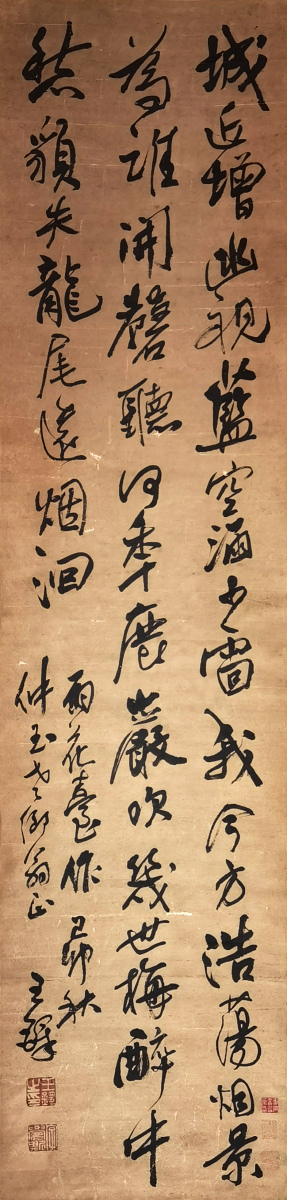 城近增幽視藍空涵少雷我今方浩蕩烟景
為誰開磬聽何年鹿巖吹幾世梅醉中
愁顥失龍尾遠烟洄
雨花臺作己卯秋
仲玉老鄉翁正 王鐸